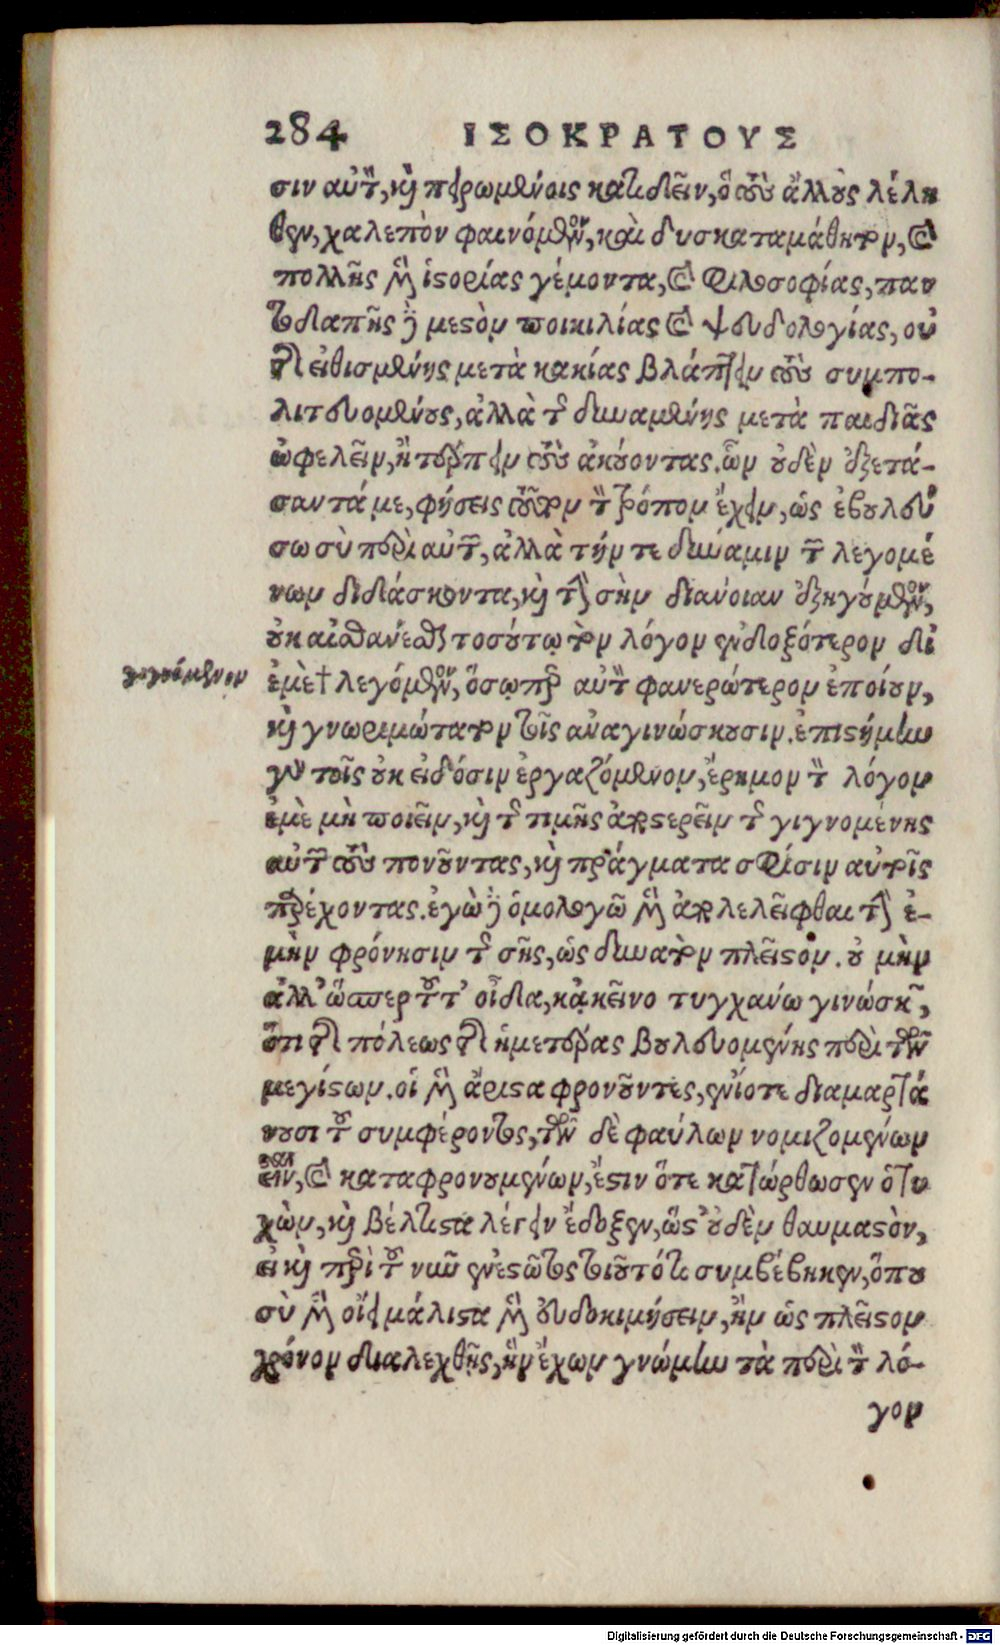 284 ΙΣΟΚΡΑΤΟΥΣ
σιν αὐτὸν, καὶ πειρωμένοις κατιδεῖν, ὃ τοὺς ἄλλους λέλη
θεν, χαλεπὸν φαινόμενον, καὶ δυσκαταμάθητον, καὶ
πολλῆς μὲν ἱστορίας γέμοντα, καὶ φιλοσοφίας, παν
τοδαπῆς δὲ μεστὸν ποικιλίας καὶ ψευδολογίας, οὐ
τῆς εἰθισμένης μετὰ κακίας βλάπτειν τοὺς συμπο-
λιτευομένους, ἀλλὰ τῆς δυναμένης μετὰ παιδιᾶς
ὠφελεῖν, ἢ τέρπειν τοὺς ἀκούοντας. ὧν οὐδὲν ἐξετά-
σαντά με, φήσεις τοῦτον τὸν τρόπον ἔχειν, ὡς ἐβουλεύ
σω σὺ περὶ αὐτῶν, ἀλλὰ τήν τε δύναμιν τῶν λεγομέ
νων διδάσκοντα, καὶ τὴν σὴν διάνοιαν ἐξηγούμενον,
οὐκ αἰσθάνεσθαι τοσούτῳ τὸν λόγον ἐνδοξότερον δι'
γιγνόμενον
ἐμὲ † λεγόμενον, ὅσῳπερ αὐτὸν φανερώτερον ἐποίουν,
καὶ γνωριμώτατον τοῖς ἀναγινώσκουσιν. ἐπιστήμην
γὰρ τοῖς οὐκ εἰδόσιν ἐργαζόμενον, ἔρημον τὸν λόγον
ἐμὲ μὴ ποιεῖν, καὶ τῆς τιμῆς ἀποστερεῖν τῆς γιγνομένης
αὐτῶν τοὺς πονοῦντας, καὶ πράγματα σφίσιν αὐτοῖς
παρέχοντας. ἐγὼ δὲ ὁμολογῶ μὲν ἀπολελεῖφθαι τὴν ἐ-
μὴν φρόνησιν τῆς σῆς, ὡς δυνατὸν πλεῖστον. οὐ μὴν
ἀλλ' ὥσπερ τοῦτ' οἶδα, κἀκεῖνο τυγχάνω γινώσκων,
ὅτι τῆς πόλεως τῆς ἡμετέρας βουλευομένης περὶ τῶν
μεγίστων. οἱ μὲν ἄριστα φρονοῦντες, ἐνίοτε διαμαρτά
νουσι τοῦ συμφέροντος, τῶν δὲ φαύλων νομιζομένων
εἶναι, καὶ καταφρονουμένων, ἔστιν ὅτε κατώρθωσεν ὁ τυ
χὼν, καὶ βέλτιστα λέγειν ἔδοξεν, ὥστ' οὐδὲν θαυμαστὸν,
εἰ καὶ περὶ τοῦ νῦν ἐνεστῶτος τοιοῦτό τι συμβέβηκεν, ὅπου
σὺ μὲν οἴει μάλιστα μὲν εὐδοκιμήσειν, ἢν ὡς πλεῖστον
χρόνον διαλεχθῇς, ἣν ἔχων γνώμην τὰ περὶ τὸν λό-
γον
Digitalisierung gefördert durch die Deutsche Forschungsgemeinschaft - DFG